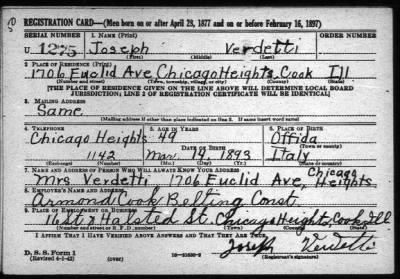 REGISTRATION CARD—(Men born on or after April 28, 1877 and on or before February 16, 1897)
SERIAL NUMBER 1. NAME (Print) ORDER NUMBER
U 1275 Joseph Verdetti
(First) (Middle) (Last)
2. PLACE OF RESIDENCE (Print)
1706 Euclid Ave Chicago Heights, Cook Ill
(Number and street) (Town, township, village, or city) (County) (State)
[THE PLACE OF RESIDENCE GIVEN ON THE LINE ABOVE WILL DETERMINE LOCAL BOARD
JURISDICTION; LINE 2 OF REGISTRATION CERTIFICATE WILL BE IDENTICAL]
3. MAILING ADDRESS
Same
[Mailing address if other than place indicated on line 2. If same insert word same]
4. TELEPHONE 5. AGE IN YEARS 6. PLACE OF BIRTH
Chicago Heights 49 Offida
DATE OF BIRTH (Town or county)
1142 Mar. 19 1893 Italy
(Exchange) (Number) (Mo.) (Day) (Yr.) (State or country)
7. NAME AND ADDRESS OF PERSON WHO WILL ALWAYS KNOW YOUR ADDRESS
Mrs Verdetti 1706 Euclid Ave, Chicago Heights
8. EMPLOYER'S NAME AND ADDRESS
Armond Cook Belting Const.
9. PLACE OF EMPLOYMENT OR BUSINESS
16 st & Halsted St. Chicago Heights, Cook Ill
(Number and street or R. F. D. number) (Town) (County) (State)
I AFFIRM THAT I HAVE VERIFIED ABOVE ANSWERS AND THAT THEY ARE TRUE.
Joseph Verdetti
D. S. S. Form 1
(Revised 4-1-42) (over) 16—21630-2 (Registrant's signature)